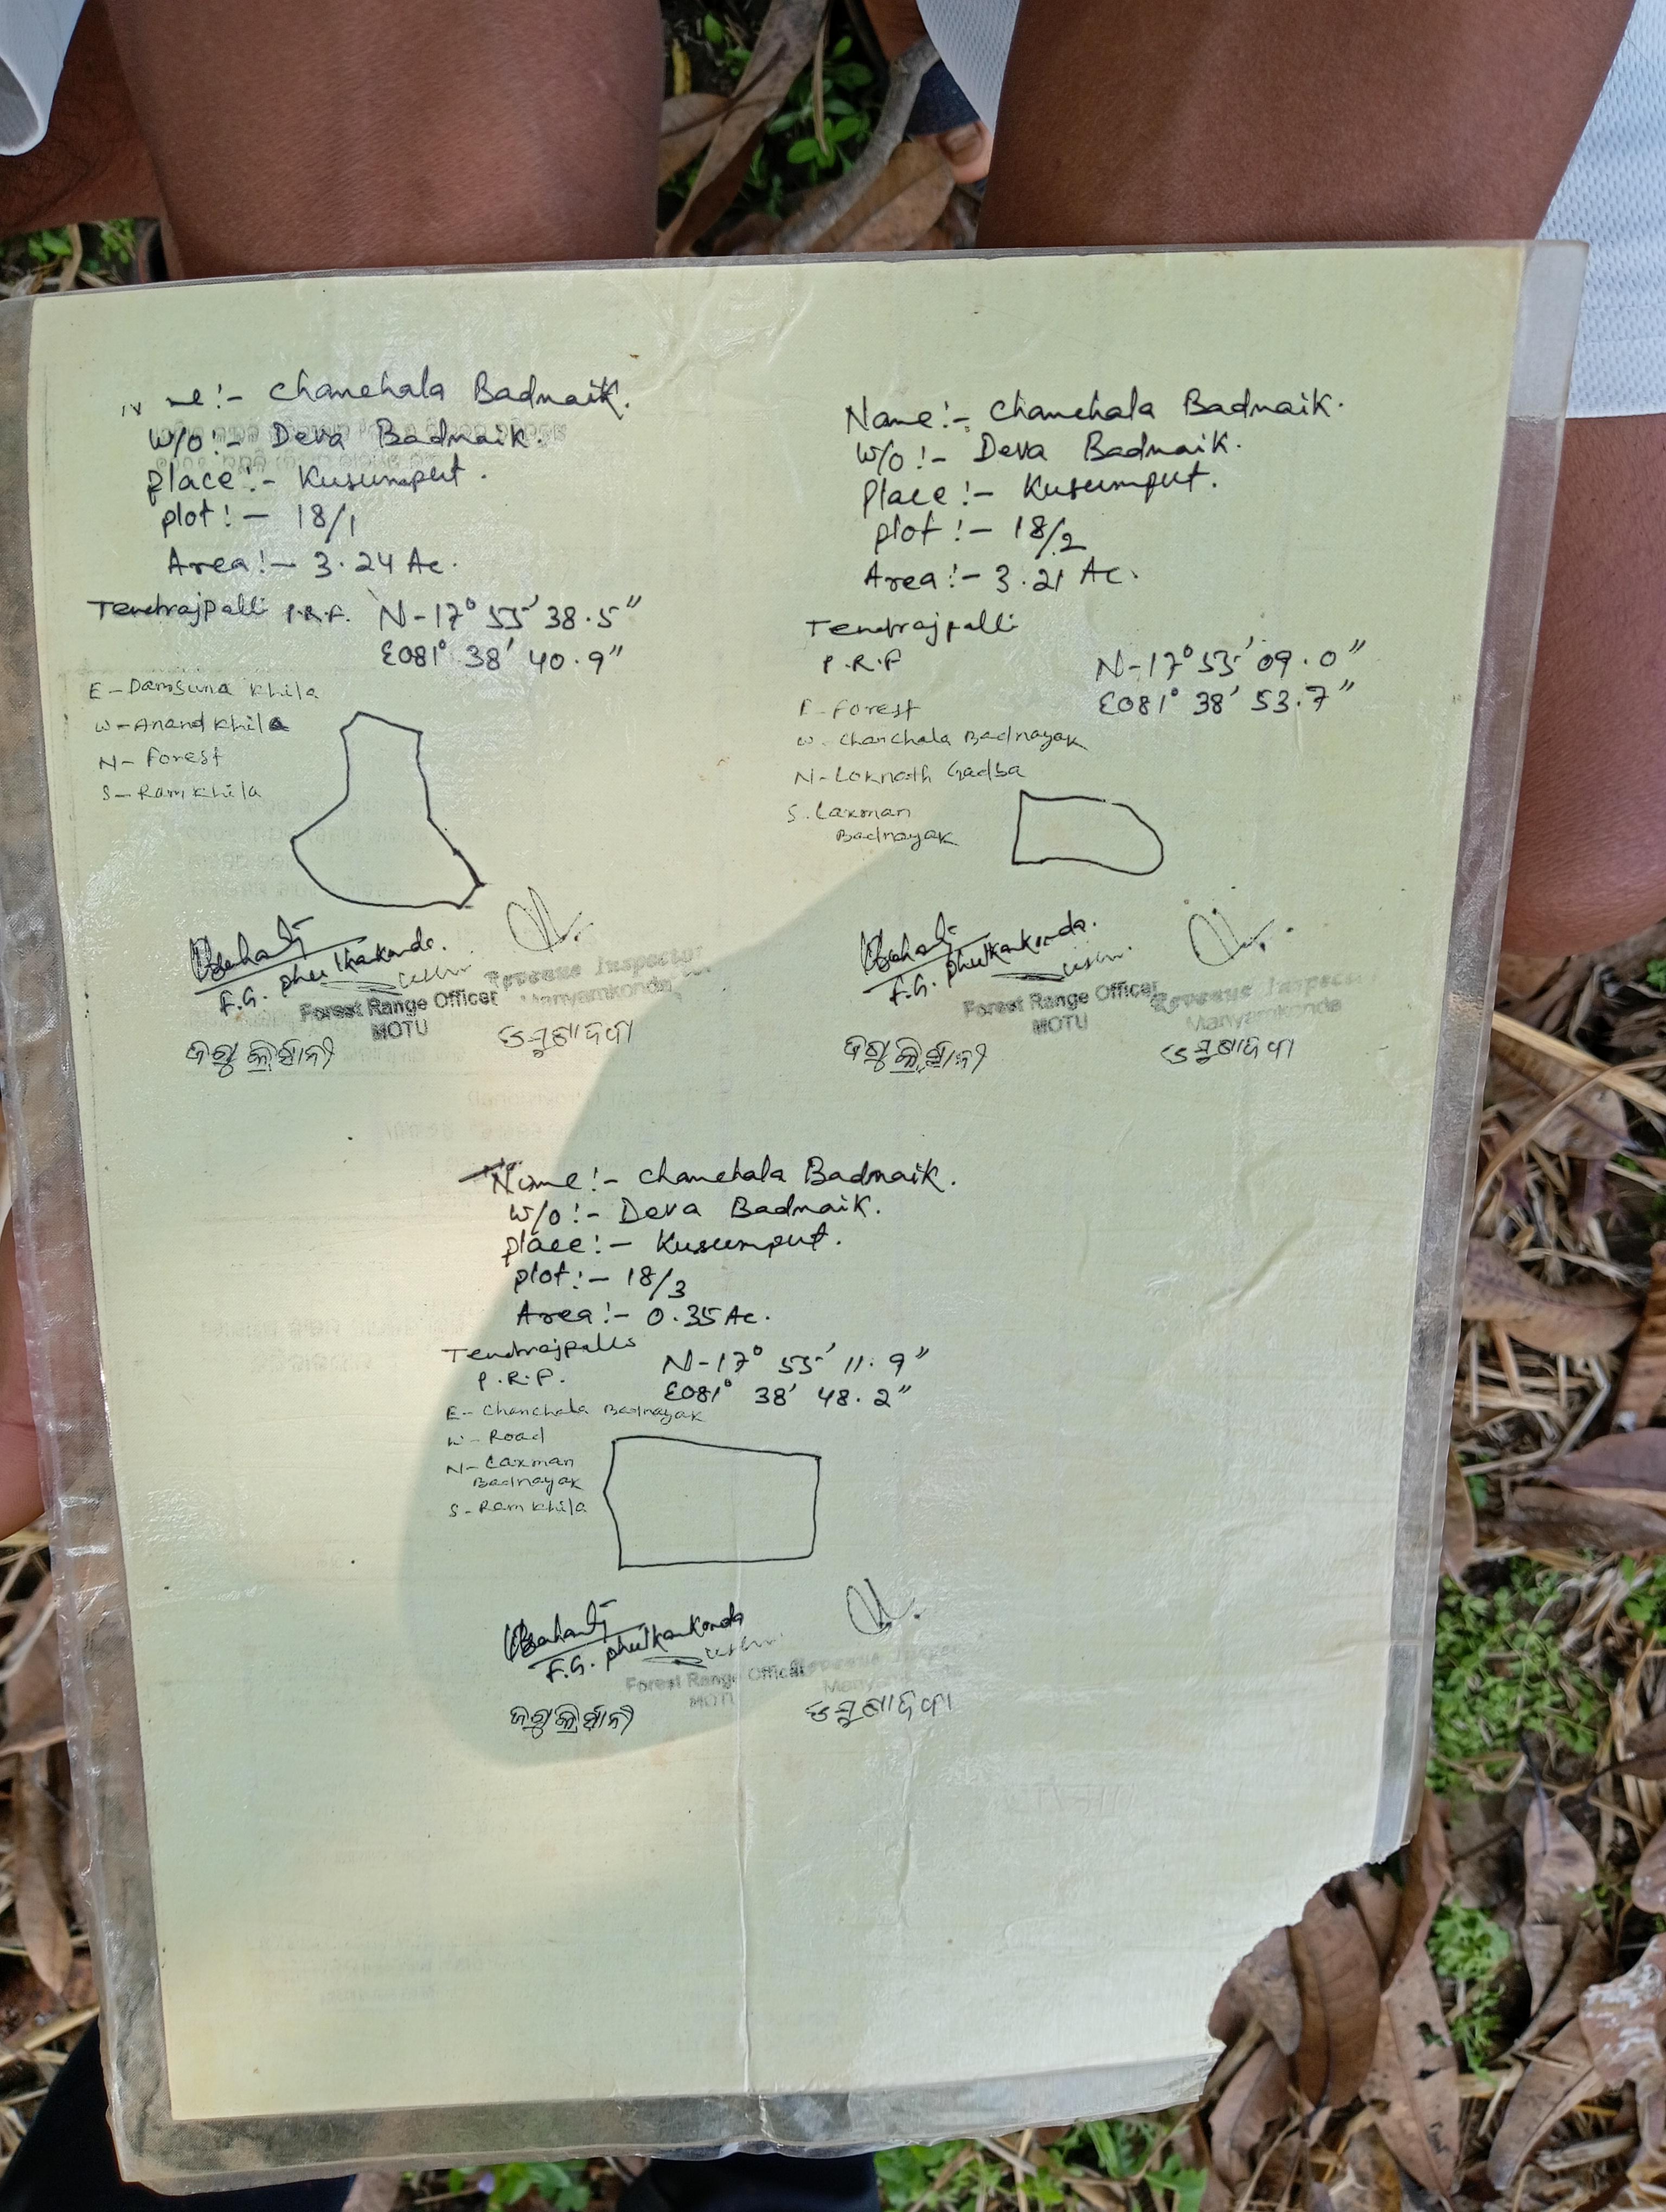 Name:- Chanchala Badnaik.
W/o:- Deva Badnaik.
Place:- Kusumput.
Plot:- 18/1
Area:- 3.24 Ac.
Tentrajpalli P.R.F. N-17° 55' 38.5"
E081° 38' 40.9"
E-Damsuna Khila
W-Anand Khila
N-Forest
S-Ram Khila
F.G. Phulkankonda.
Forest Range Officer
MOTU
Revenue Inspector
Manyamkonda
Name:- Chanchala Badnaik.
W/o:- Deva Badnaik.
Place:- Kusumput.
Plot:- 18/2
Area:- 3.21 Ac.
Tentrajpalli
P.R.F
N-17° 55' 09.0"
E081° 38' 53.7"
E-Forest
W-Chanchala Badnayak
N-Loknath Gadba
S.Laxman
Badnayak
F.G. Phulkankonda.
Forest Range Officer
MOTU
Revenue Inspector
Manyamkonda
Name:- Chanchala Badnaik.
W/o:- Deva Badnaik.
Place:- Kusumput.
Plot:- 18/3
Area:- 0.35 Ac.
Tentrajpalli
P.R.F.
N-17° 55' 11.9"
E081° 38' 48.2"
E-Chanchala Badnayak
W-Road
N-Laxman
Badnayak
S-Ram Khila
F.G. Phulkankonda
Forest Range Officer
MOTU
Revenue Inspector
Manyamkonda